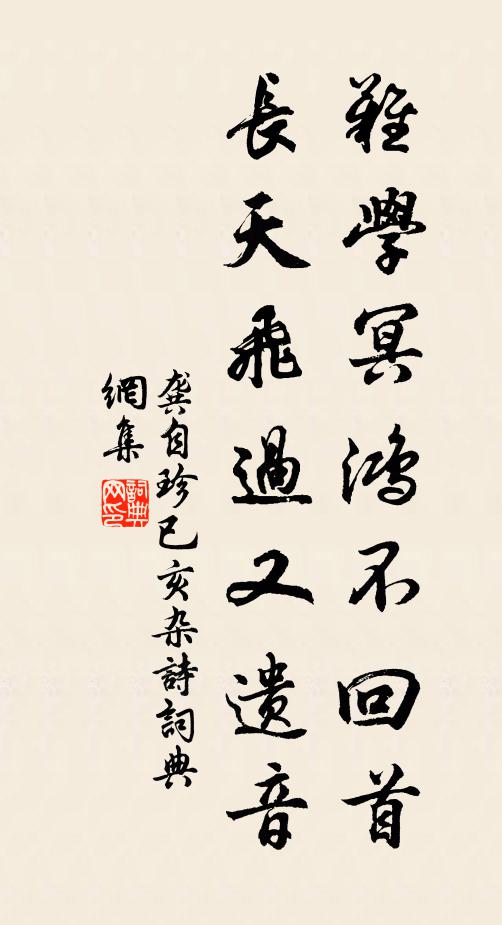 難學冥鴻不回首
長天飛過又遺音
龔自珍已亥杂詩詞典
網集
詞典網印